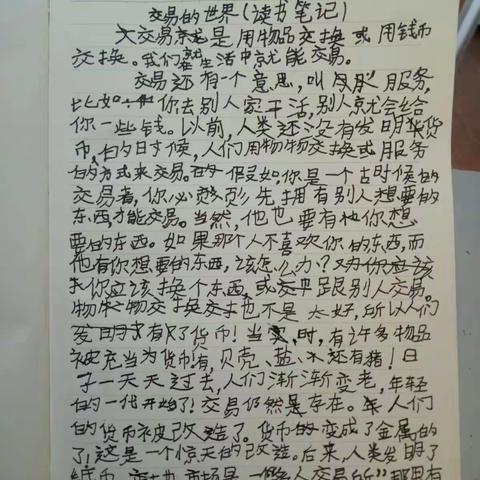 交易的世界(读书笔记)
交易就是用物品交换或用钱币
交换。我们在生活中就能交易。
交易还有一个意思,叫服务,
比如你去别人家干活,别人就会给
你一些钱。以前,人类还没有发明货
币,的时候,人们用物物交换或服务
的方式来交易。假如,你是一个古时候的
交易者,你必须先拥有别人想要的
东西,才能交易。当然,他也要有你想
要的东西。如果那个人不喜欢你的东西,而
他有你想要的东西,该怎么办?你应该
你应该换个东西,或跟别人交易。
物物交换也不是太好,所以人们
发明了货币!当时,有许多物品
被充当为货币!有,贝壳、盐、还有猪!日
子一天天过去,人们渐渐变老,年轻
的一代开始了!交易仍然是存在。人们
的货币被改造了。货币的变成了金属的
了,这是一个惊天的改造。后来,人类发明了
纸币,市场是一个"多人交易所"那里有